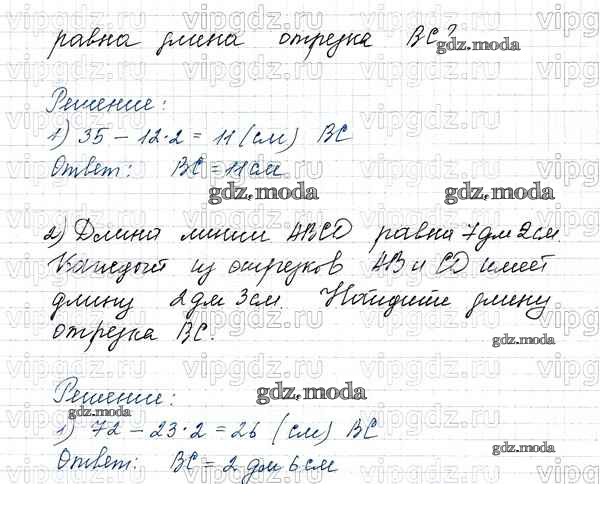 равна длина отрезка BC?
gdz.moda
Решение:
1) 35 - 12·2 = 11 (см) BC
Ответ: BC = 11 см
gdz.moda gdz.moda
2) Длина линии ABCD равна 7 дм 2 см.
Каждый из отрезков AB и CD имеет
длину 2 дм 3 см. Найдите длину
отрезка BC.
gdz.moda
Решение:
gdz.moda
gdz.moda
1) 72 - 23·2 = 26 (см) BC
gdz.moda
Ответ: BC = 2 дм 6 см
vipgdz.ru